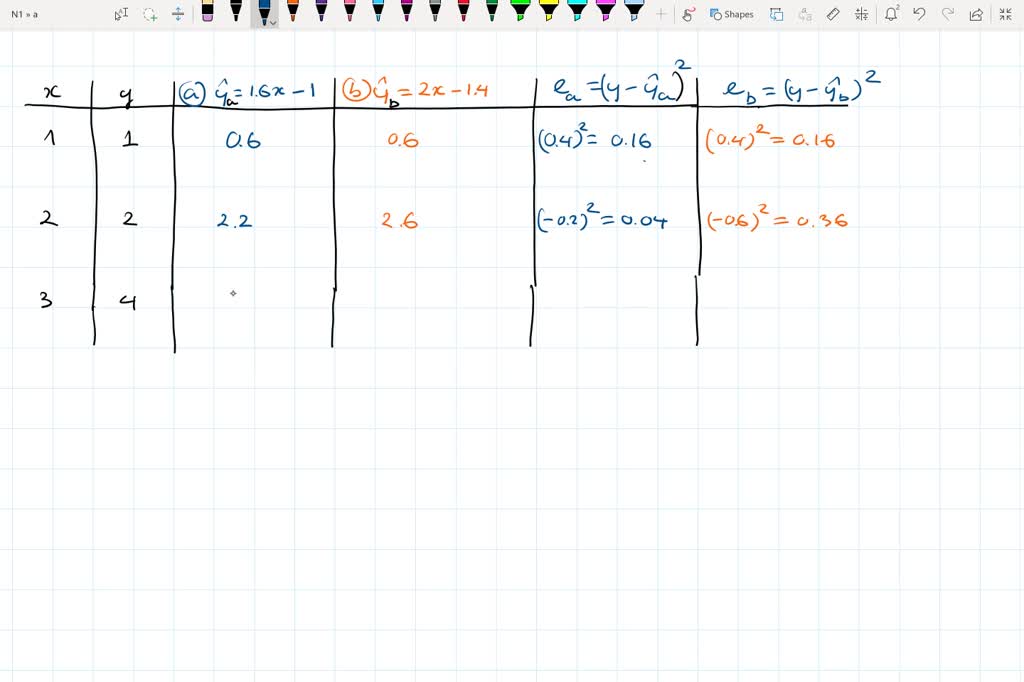 N1 » a Shapes
x y (a) ŷₐ = 1.6x − 1 (b) ŷ_b = 2x − 1.4 eₐ = (y − ŷₐ)² e_b = (y − ŷ_b)²
1 1 0.6 0.6 (0.4)² = 0.16 (0.4)² = 0.16
2 2 2.2 2.6 (−0.2)² = 0.04 (−0.6)² = 0.36
3 4